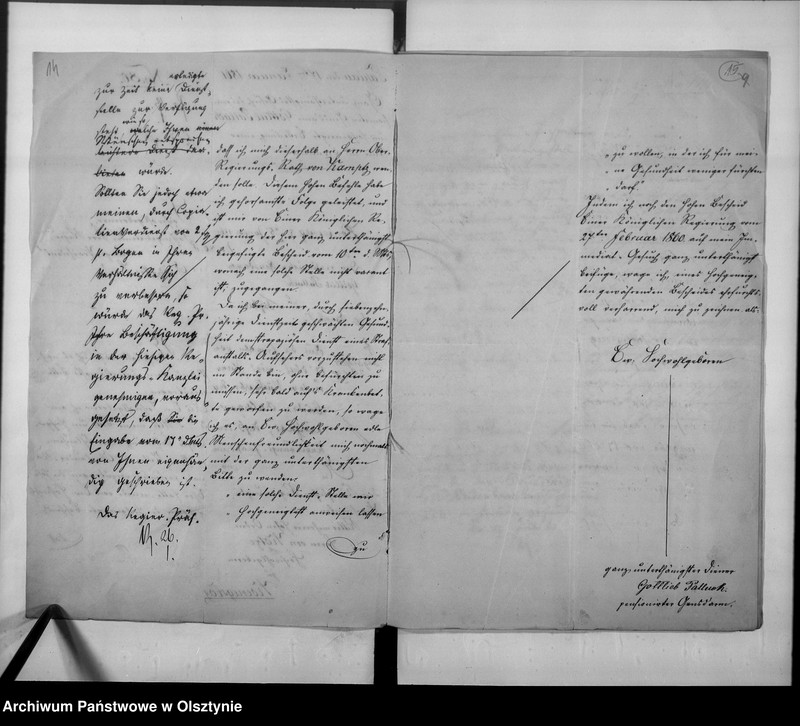 14
erledigte
zur Zeit keine Dienst,
stelle zur Verfügung
steht, welche Ihren
Wünschen entsprechen
würde.
Sollten Sie jedoch etwa
meinen, durch Copia,
lienverdienst von 2½ Sg
p. Bogen in Ihren
Verhältnisse sich
zu verbessern, so
würde das Reg. Pr.
Ihre Beschäftigung
in der hiesigen Re,
gierungs-Kanzlei
genehmigen, voraus
gesetzt, daß die
Eingabe vom 17.
von Ihnen eigenhän,
dig geschrieben ist.
Der Regier. Präs.
26.
1.
daß ich mich dieserhalb an Herrn Ober-
Regierungs-Rath von Kamptz, wen,
den solle. Diesem hohen Befehle habe
ich gehorsamste Folge geleistet, und
ist mir von Einer Königlichen Re,
gierung der hier ganz unterthänigst
beigefügte Bescheid vom 10ten d. Mts,
wonach eine solche Stelle nicht vacant
ist, zugegangen.
Da ich bei meiner, durch siebenzehn,
jährige Dienstzeit geschwächten Gesund,
heit dem strapaziösen Dienst eines Straf
anstalts-Aufsehers vorzustehen nicht
im Stande bin, ohne befürchten zu
müssen, sehr bald auf's Krankenbet,
te geworfen zu werden, so wage
ich es, an Ew. Hochwohlgeboren edle
Menschenfreundlichkeit mich nochmals
mit der ganz unterthänigsten
Bitte zu wenden:
" eine solche Dienst-Stelle mir
" hochgeneigtest anweisen lassen
zu
15
9
" zu wollen, in der ich für mei-
" ne Gesundheit weniger fürchten
" darf."
Indem ich noch den hohen Bescheid
Einer Königlichen Regierung vom
27ten Februar 1860 auf mein Im,
mediat-Gesuch ganz unterthänigst
beifüge, wage ich, eines hochgeneig,
ten gewährenden Bescheides ehrfurchts,
voll verharrend, mich zu zeichnen als:
Ew. Hochwohlgeboren
ganz unterthänigster Diener
Gottlieb Salluck.
pensionirter Gensdarm.
Archiwum Państwowe w Olsztynie